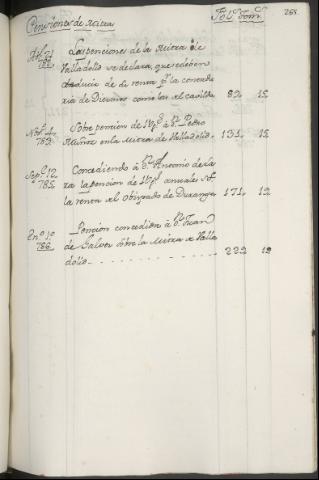 Pensiones de Mitra Fol. Tom. 268
Las penciones de la Mitra de
Valladolid se declara, que se deben
deducir de
de Diezmos como las del Cavildo 89. 15
Nbe. 4
783. Sobre pencion de á Dn. Pedro
Muñoz en la Mitra de Valladolid. 131. 15
Sepe. 12
785. Concediendo á Dn. Antonio de la
la pencion de anuales de
la renta del Obispado de Durango 171. 12
En. 10
786. Pencion concedida á Dn. Juan
de Galvez sobre la Mitra de Valla
dolid 222 12